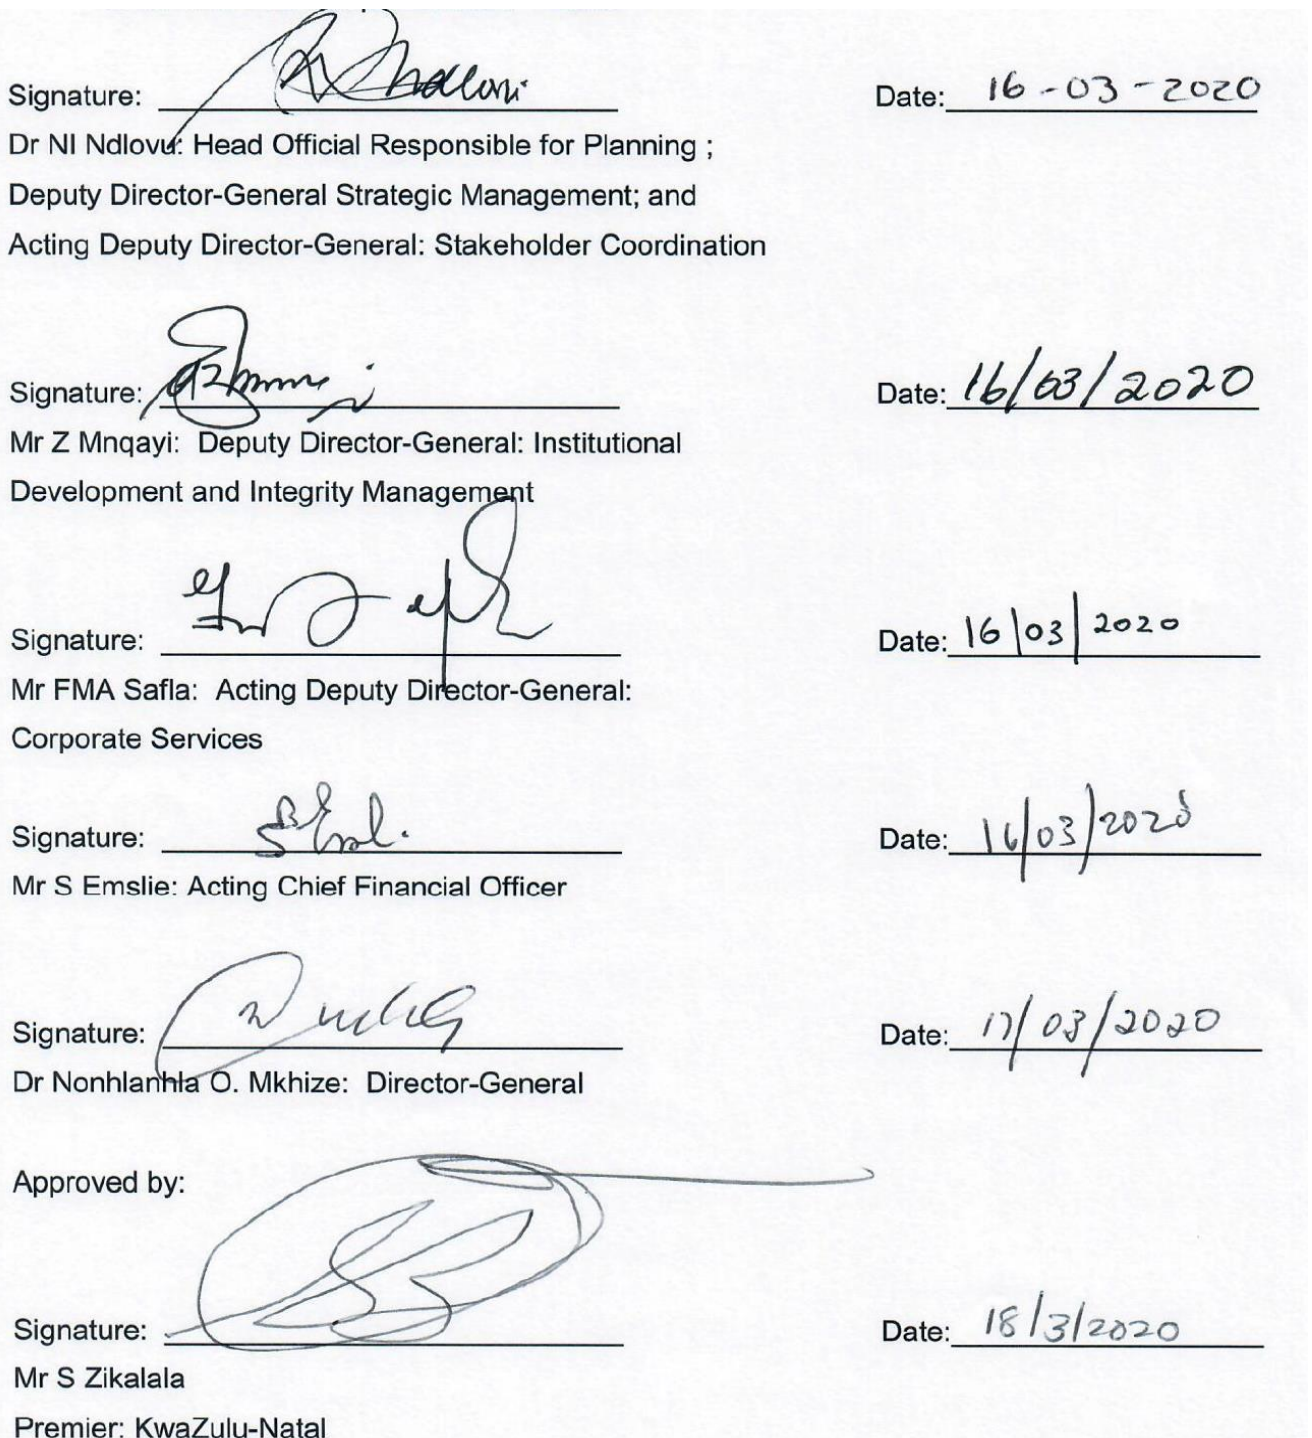 Signature: Date: 16-03-2020
Dr NI Ndlovu: Head Official Responsible for Planning ;
Deputy Director-General Strategic Management; and
Acting Deputy Director-General: Stakeholder Coordination
Signature: Date: 16/03/2020
Mr Z Mnqayi: Deputy Director-General: Institutional
Development and Integrity Management
Signature: Date: 16/03/2020
Mr FMA Safla: Acting Deputy Director-General:
Corporate Services
Signature: Date: 16/03/2020
Mr S Emslie: Acting Chief Financial Officer
Signature: Date: 17/03/2020
Dr Nonhlanhla O. Mkhize: Director-General
Approved by:
Signature: Date: 18/3/2020
Mr S Zikalala
Premier: KwaZulu-Natal